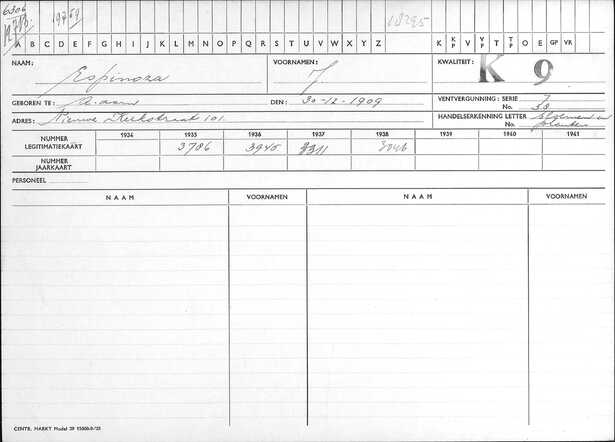 6306 19769 18295
A B C D E F G H I J K L M N O P Q R S T U V W X Y Z K K/P V V/F T T/P O E GP VR
NAAM: Espinoza VOORNAMEN: J KWALITEIT: K 9
GEBOREN TE: A.dam DEN: 30-12-1909 VENTVERGUNNING: SERIE 7
No. 38
ADRES: Nieuwe Kerkstraat 101 HANDELSERKENNING LETTER Bloemen en
No. planten
1934 1935 1936 1937 1938 1939 1940 1941
NUMMER LEGITIMATIEKAART 3786 3945 3311 3046
NUMMER JAARKAART
PERSONEEL
NAAM VOORNAMEN NAAM VOORNAMEN
CENTR. MARKT Model 39